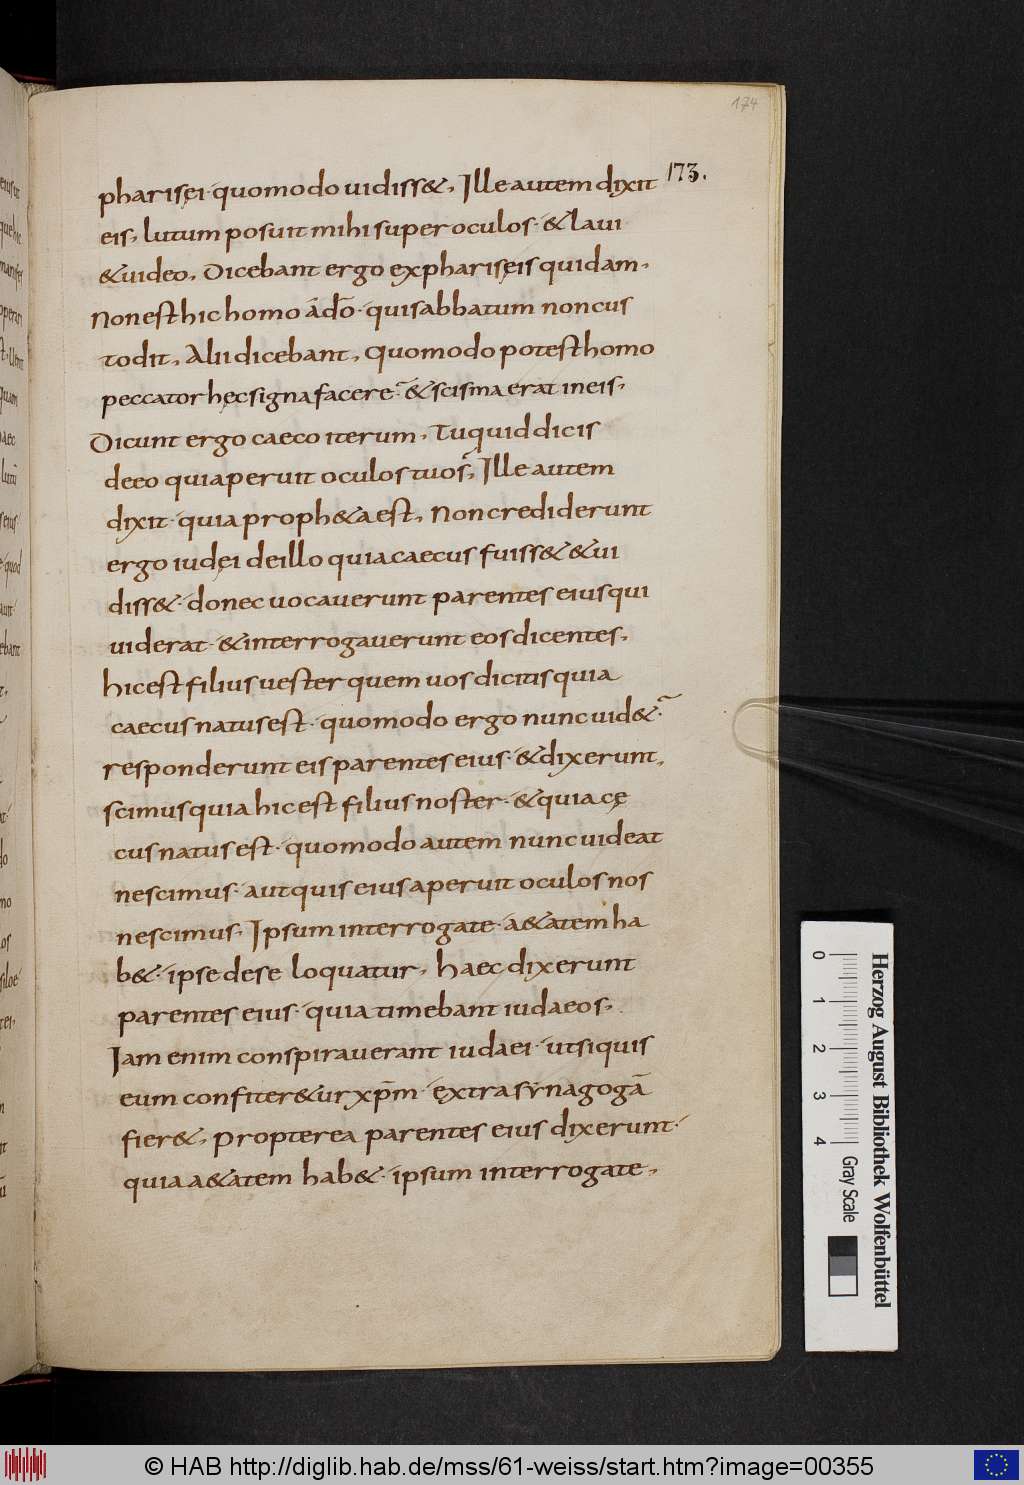 174
173.
pharisęi· quomodo uidiss&, Ille autem dixit
eis, lutum posuit mihi super oculos· & laui
& uideo, Dicebant ergo ex pharisęis quidam,
Non est hic homo a d̄o· qui sabbatum non cus
todit, Alii dicebant, quomodo potest homo
peccator hęc signa facere? & scisma erat in eis,
Dicunt ergo caeco iterum, Tu quid dicis
de eo qui aperuit oculos tuos? Ille autem
dixit· quia proph&a est, Non crediderunt
ergo iudęi de illo quia caecus fuiss& & ui
diss&· donec uocauerunt parentes eius qui
uiderat· & interrogauerunt eos dicentes,
hic est filius uester quem uos dicitis quia
caecus natus est· quomodo ergo nunc uid&?
responderunt eis parentes eius· & dixerunt,
scimus quia hic est filius noster· & quia cę
cus natus est· quomodo autem nunc uideat
nescimus· aut quis eius aperuit oculos nos
nescimus, Ipsum interrogate· a&atem ha
b&· ipse de se loquatur, haec dixerunt
parentes eius· quia timebant iudaeos,
Iam enim conspirauerant iudaei· ut si quis
eum confiter&ur xp̄m· extra synagogā
fier&, propterea parentes eius dixerunt·
quia a&atem hab&· ipsum interrogate,
Herzog August Bibliothek Wolfenbüttel
0 1 2 3 4 Gray Scale
© HAB http://diglib.hab.de/mss/61-weiss/start.htm?image=00355